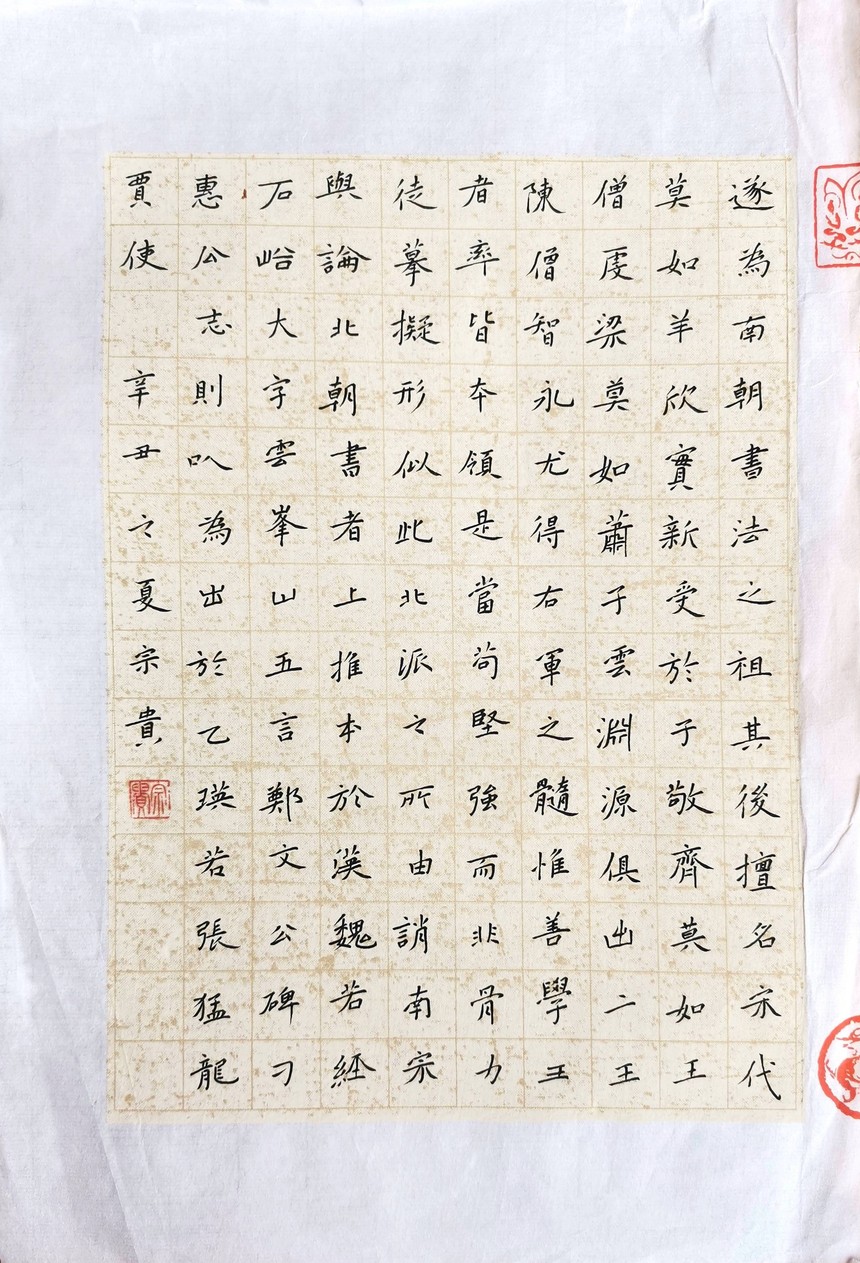 遂為南朝書法之祖其後擅名宋代
莫如羊欣實新受於子敬齊莫如王
僧虔梁莫如蕭子雲淵源俱出二王
陳僧智永尤得右軍之髓惟善學王
者率皆本領是當苟堅強而非骨力
徒摹擬形似此北派之所由誚南宗
與論北朝書者上推本於漢魏若經
石峪大字雲峯山五言鄭文公碑刁
惠公志則以為出於乙瑛若張猛龍
賈使 辛丑之夏宗貴
宗貴